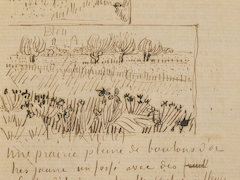 Bleu
Une prairie pleine de boutons d'or
très jaune un fossé avec des